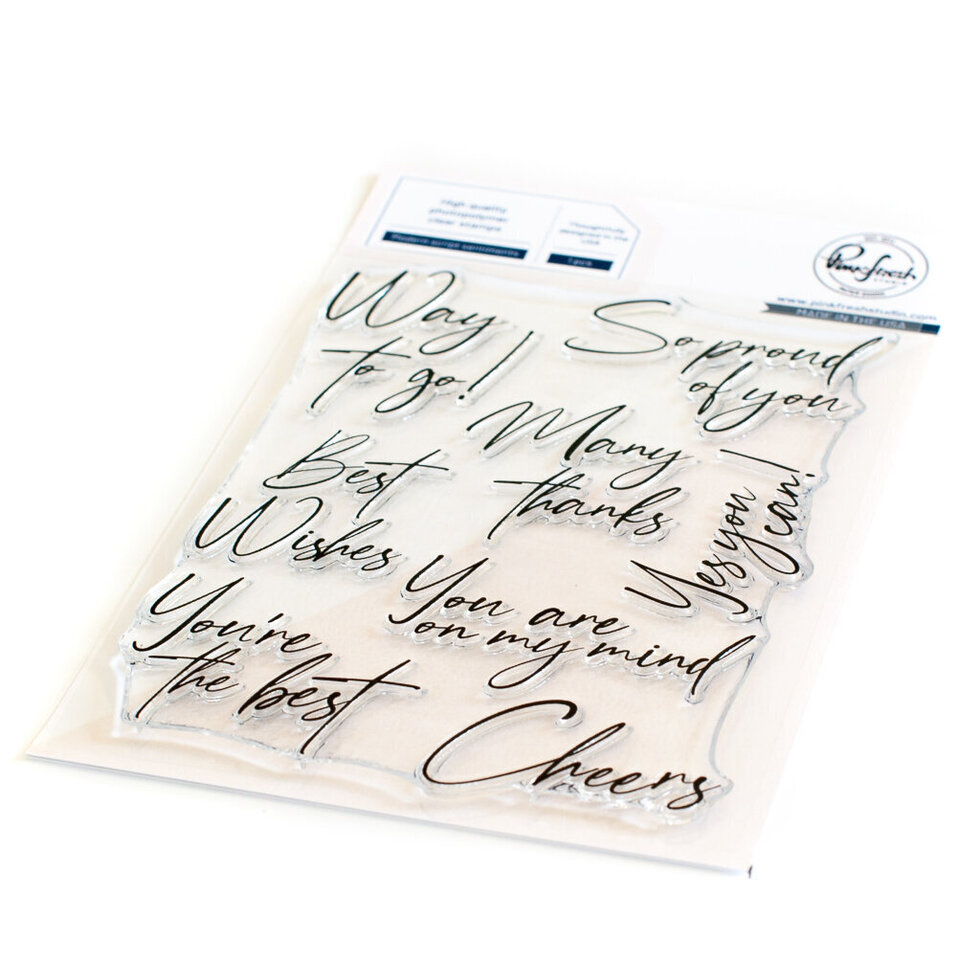 High quality
photopolymer
clear stamps
Thoughtfully
designed in the
USA
Pinkfresh
STUDIO
www.pinkfreshstudio.com
MADE IN THE USA
Way
to go!
So proud
of you
Many
thanks
Yes you
can!
Best
Wishes
You are
on my mind
You're
the best
Cheers